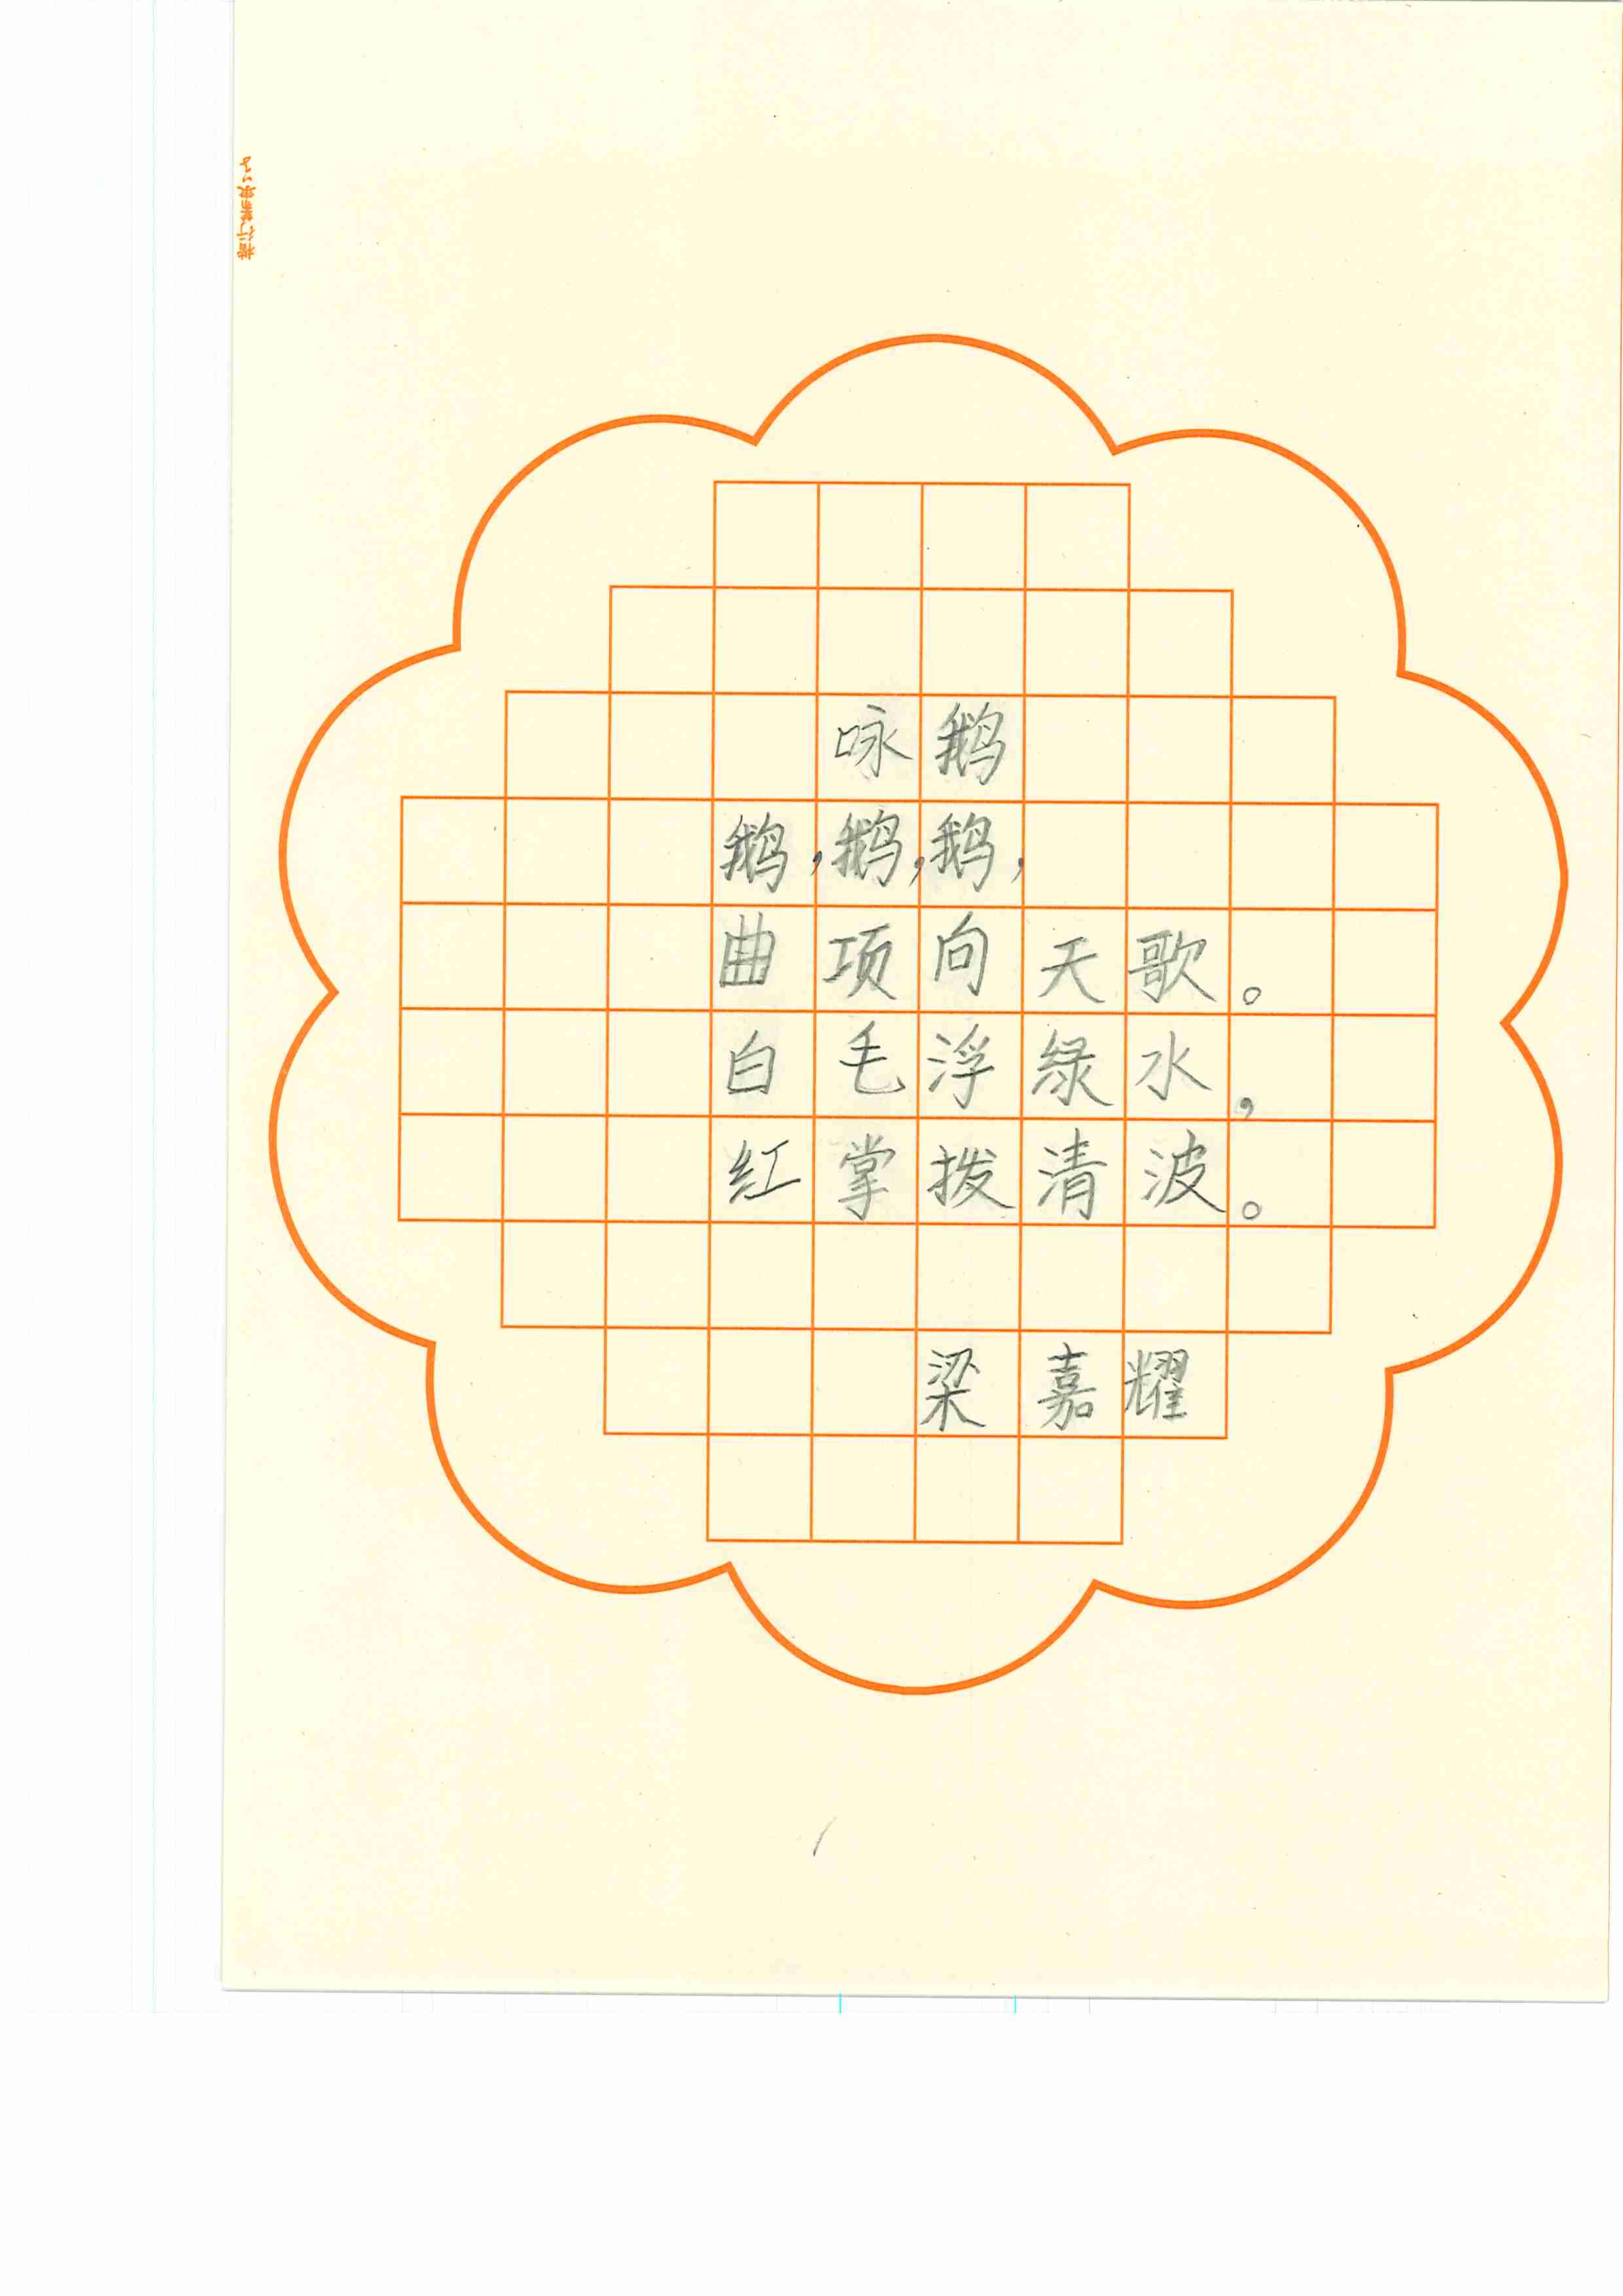 咏鹅
鹅,鹅,鹅,
曲项向天歌。
白毛浮绿水,
红掌拨清波。
梁嘉耀